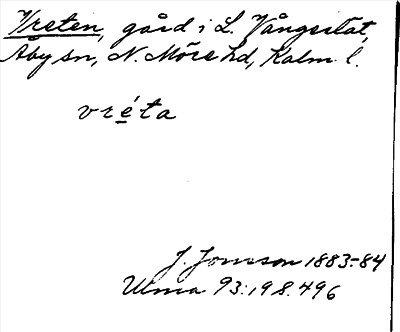 Vreten, gård i L. Vångerslät,
Åby sn, N. Möre hd, Kalm. l.
vréta
J. Jonsson 1883-84
Ulma 93:198.496